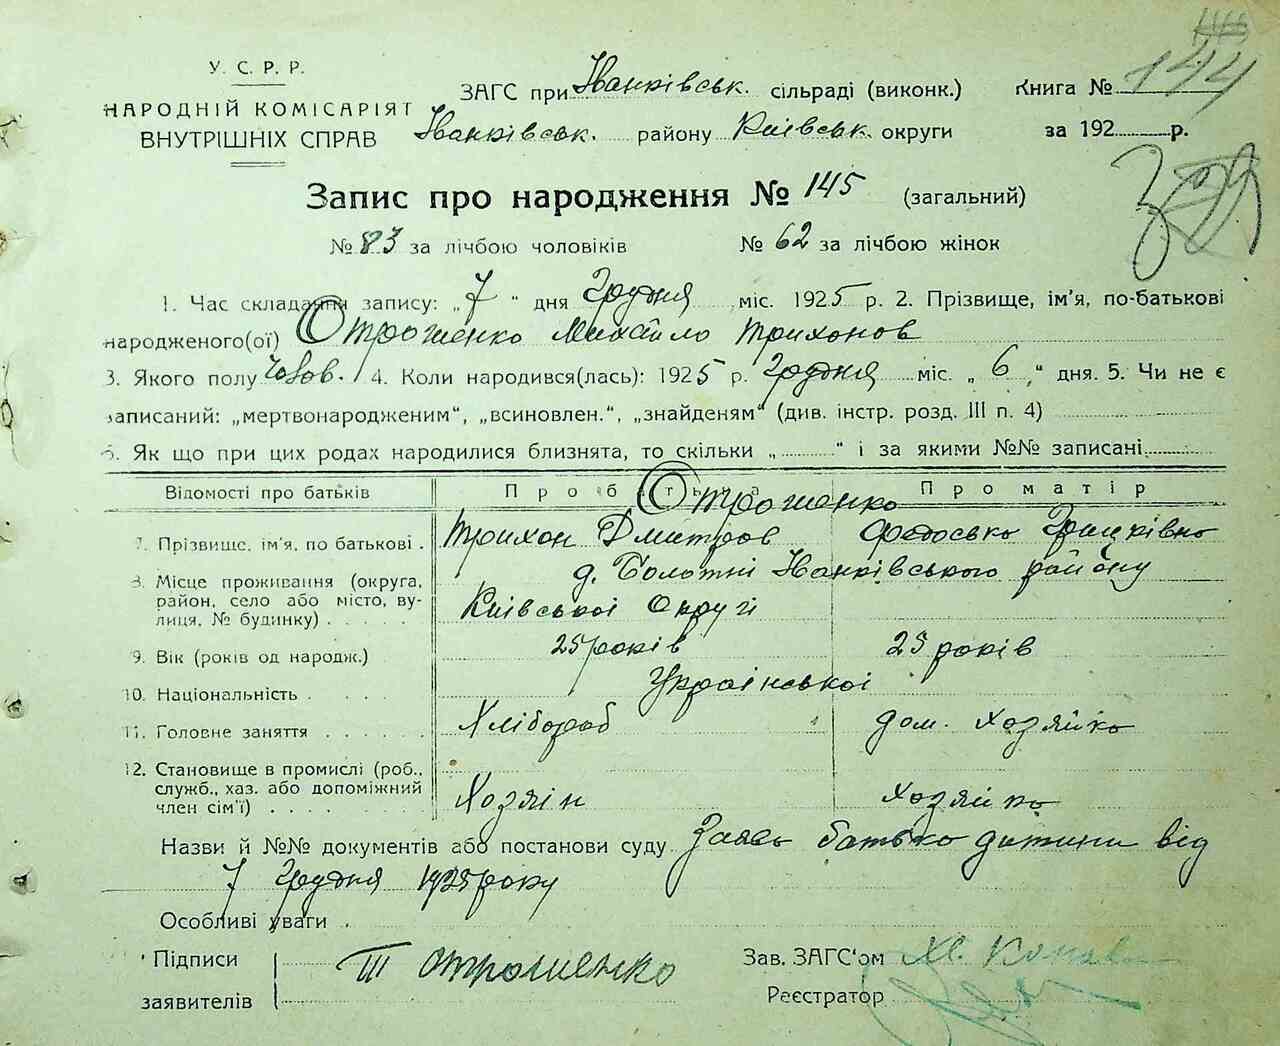 У. С. Р. Р.
НАРОДНІЙ КОМІСАРІЯТ
ВНУТРІШНІХ СПРАВ
ЗАГС при Іванківськ. сільраді (виконк.)
Іванківськ. району Київськ. округи
Книга № 144
за 192 р.
Запис про народження № 145 (загальний)
№ 83 за лічбою чоловіків № 62 за лічбою жінок
1. Час складання запису: „7" дня Грудня міс. 1925 р. 2. Прізвище, ім'я, по-батькові
народженого(ої) Отрошенко Михайло Трихонов
3. Якого полу Чолов. 4. Коли народився(лась): 1925 р. Грудня міс. „6" дня. 5. Чи не є
записаний: „мертвонародженим", „всиновлен.", „знайденям" (див. інстр. розд. III п. 4)
6. Як що при цих родах народилися близнята, то скільки „ " і за якими №№ записані
Відомості про батьків Про батька Про матір
Отрошенко
7. Прізвище, ім'я, по батькові . Трихон Дмитров Федоська Грицківна
8. Місце проживання (округа, район, село або місто, вулиця, № будинку) . . . . .
д. Болотні Іванківського району
Київської Округі
9. Вік (років од народж.) 25 років 25 років
10. Національність . . . . Української
11. Головне заняття . . . . . Хлібораб дом. хозяйка
12. Становище в промислі (роб., служб., хаз. або допоміжний член сім'ї) . . . . Хозяін хозяйка
Назви й №№ документів або постанови суду Заява батька дитини від
7 Грудня 1925 року
Особливі уваги .
Підписи
заявителів
Отрошенко
Зав. ЗАГС'ом
Реєстратор